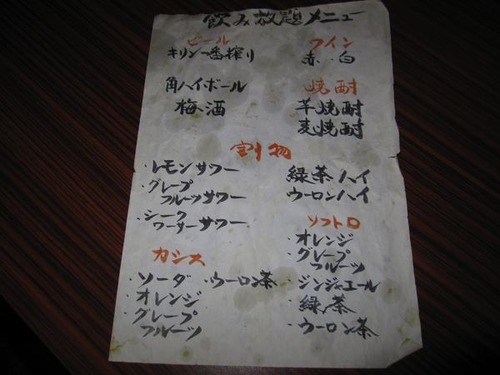 飲み放題メニュー
ビール
キリン一番搾り
角ハイボール
梅酒
ワイン
赤・白
焼酎
芋焼酎
麦焼酎
割物
・レモンサワー
・グレープ
フルーツサワー
・シーク
ワーサーサワー
緑茶ハイ
ウーロンハイ
カシス
・ソーダ ・ウーロン茶
・オレンジ
・グレープ
フルーツ
ソフトロ
・オレンジ
・グレープ
フルーツ
・ジンジャエール
・緑茶
・ウーロン茶